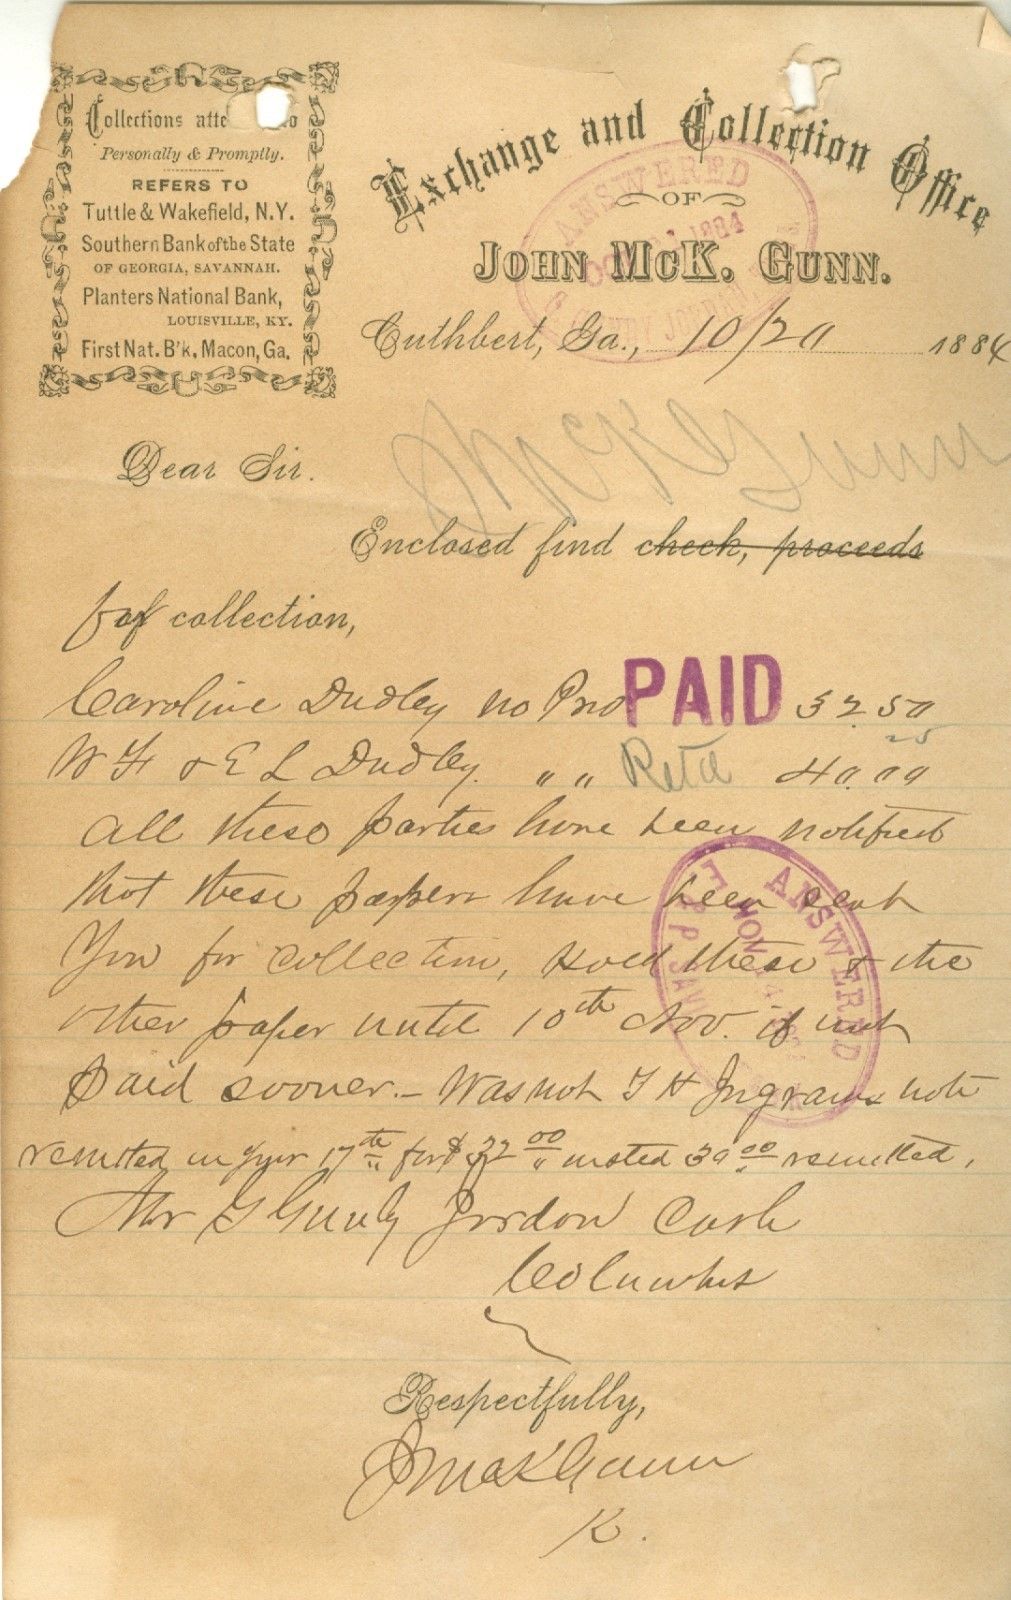 Collections atte to
Personally & Promptly.
REFERS TO
Tuttle & Wakefield, N.Y.
Southern Bank of the State
OF GEORGIA, SAVANNAH.
Planters National Bank,
LOUISVILLE, KY.
First Nat. B'k, Macon, Ga.
Exchange and Collection Office
OF
JOHN McK. GUNN.
ANSWERED
1884
Cuthbert, Ga., 10/20 1884
J McK Gunn
Dear Sir.
Enclosed find check, proceeds
for collection,
Caroline Dudley no Pro PAID 32.50
25
W F & E L Dudley. " " Retd 40.00
All these parties have been notified
that these papers have been sent
You for collection, Hold these & the
other paper until 10th Nov. if not
paid sooner. – Was not T H Ingrams note
remitted in your 17th for $32 00 insted 30 00 remitted,
Mr G Gunby Jordon Cash
Columbus
ANSWERED
NOV
Respectfully,
J McK Gunn
K.